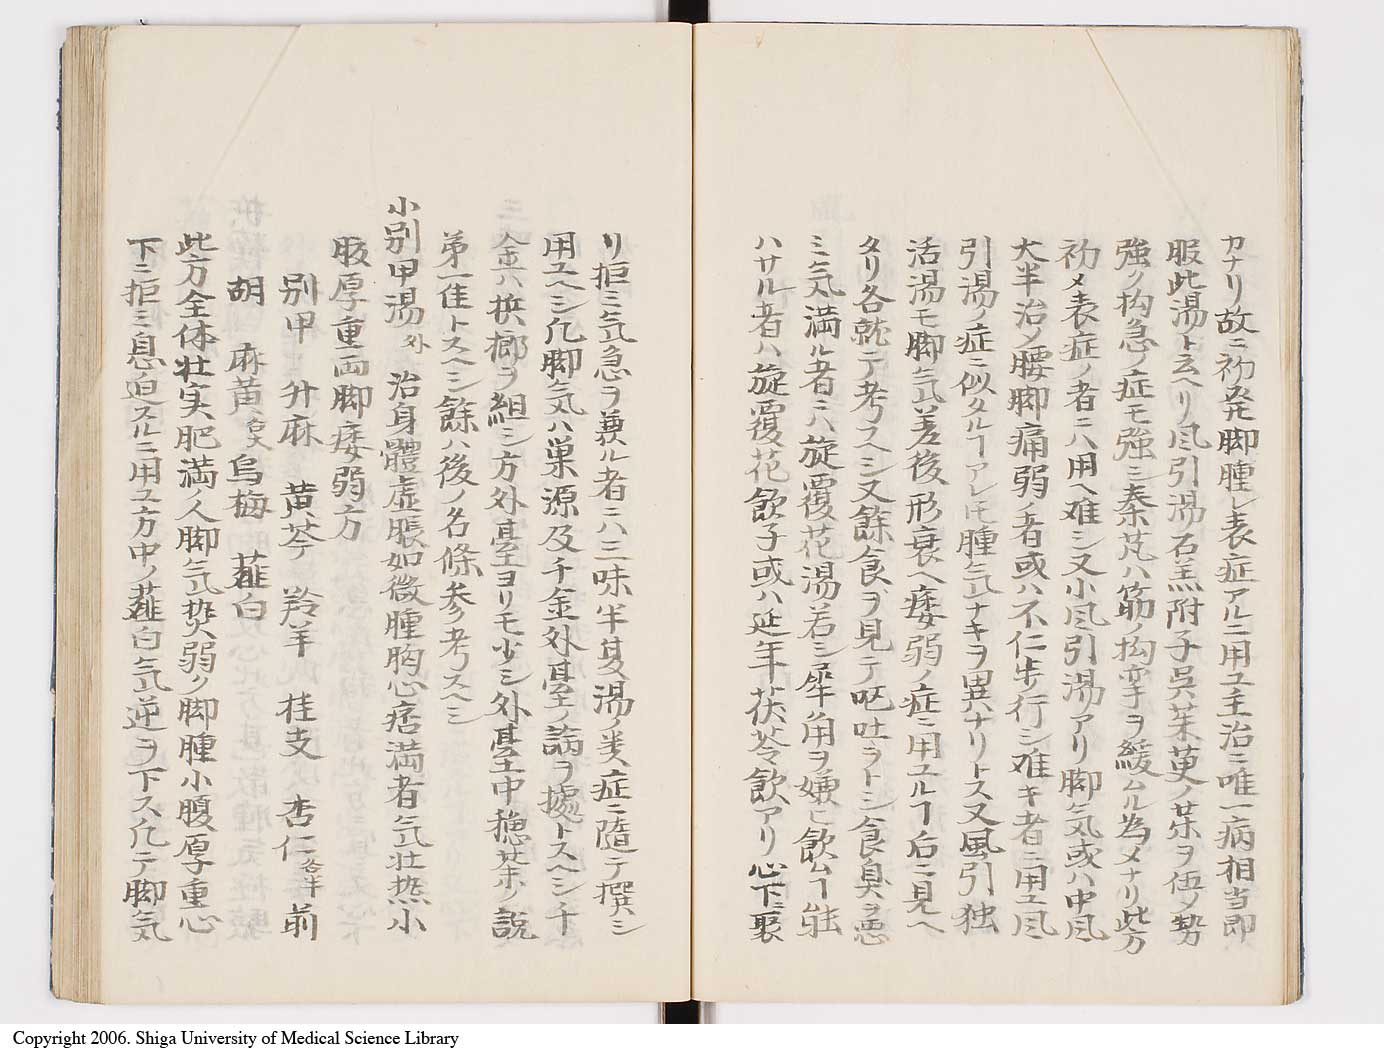 カナリ故ニ初発脚腫レ表症アルニ用ユ主治ニ唯一病相当即
服此湯ト云ヘリ风引湯石羔附子呉茱萸ノ茱ヲ伍ノ勢
強ノ拘急ノ症モ強ミ秦艽ハ筋ノ拘挛ヲ緩ムル為メナリ此方
初メ表症ノ者ニハ用ヘ难シ又小风引湯アリ脚気或ハ中风
大半治ノ腰脚痛弱ノ者或ハ不仁歩行シ难キ者ニ用ユ风
引湯ノ症ニ似タルヿアレ𪜈腫気ナキヲ異ナリトス又風引独
活湯モ脚気差後形衰ヘ痿弱ノ症ニ用ユルヿ后ニ見ヘ
タリ各就テ考スヘシ又餘食ヲ見テ呕吐ヲトシ食臭ヲ悪
ミ気満ル者ニハ旋覆花湯若シ犀角ヲ嫌ヒ飲ムヿ能
ハサル者ハ旋覆花飲子或ハ延年茯苓飲アリ心下ニ聚
リ拒ミ気急ヲ兼ル者ニハ三味半夏湯ノ类症ニ隨テ撰シ
用ユヘシ凡脚気ハ巣源及千金外臺ノ論ヲ據トスヘシ千
金ハ梹榔ヲ組シ方外臺ヨリモ少シ外臺中穏茱ノ説
第一佳トスヘシ餘ハ後ノ名條参考スヘシ
小別甲湯 外 治身體虚脹如微腫胸心痞満者气壮熱小
腹厚重両脚痿弱方
別甲 升麻 黄芩 羚羊 桂支 杏仁各半 前
胡 麻黄 烏梅 薤白
此方全体壮実肥満ノ人脚気热弱ノ脚腫小腹厚重心
下ニ拒ミ息迫スルニ用ユ方中ノ薤白气逆ヲ下ス凡テ脚気
Copyright 2006. Shiga University of Medical Science Library